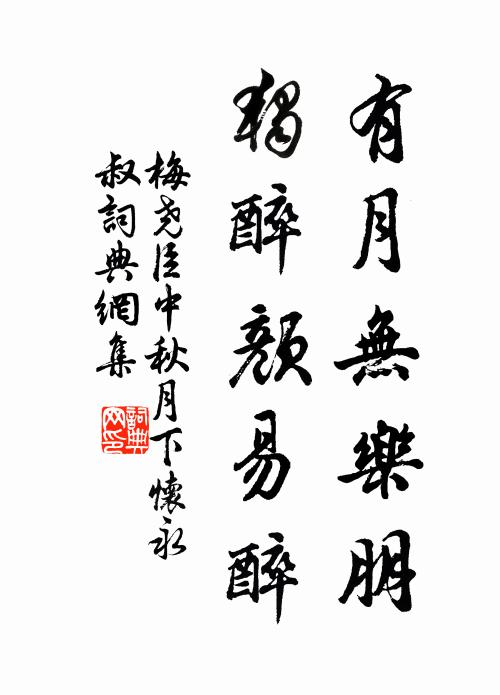 有月無樂朋
獨醉顏易醉
梅堯臣中秋月下懷永
叔詞典網集
詞典
网印